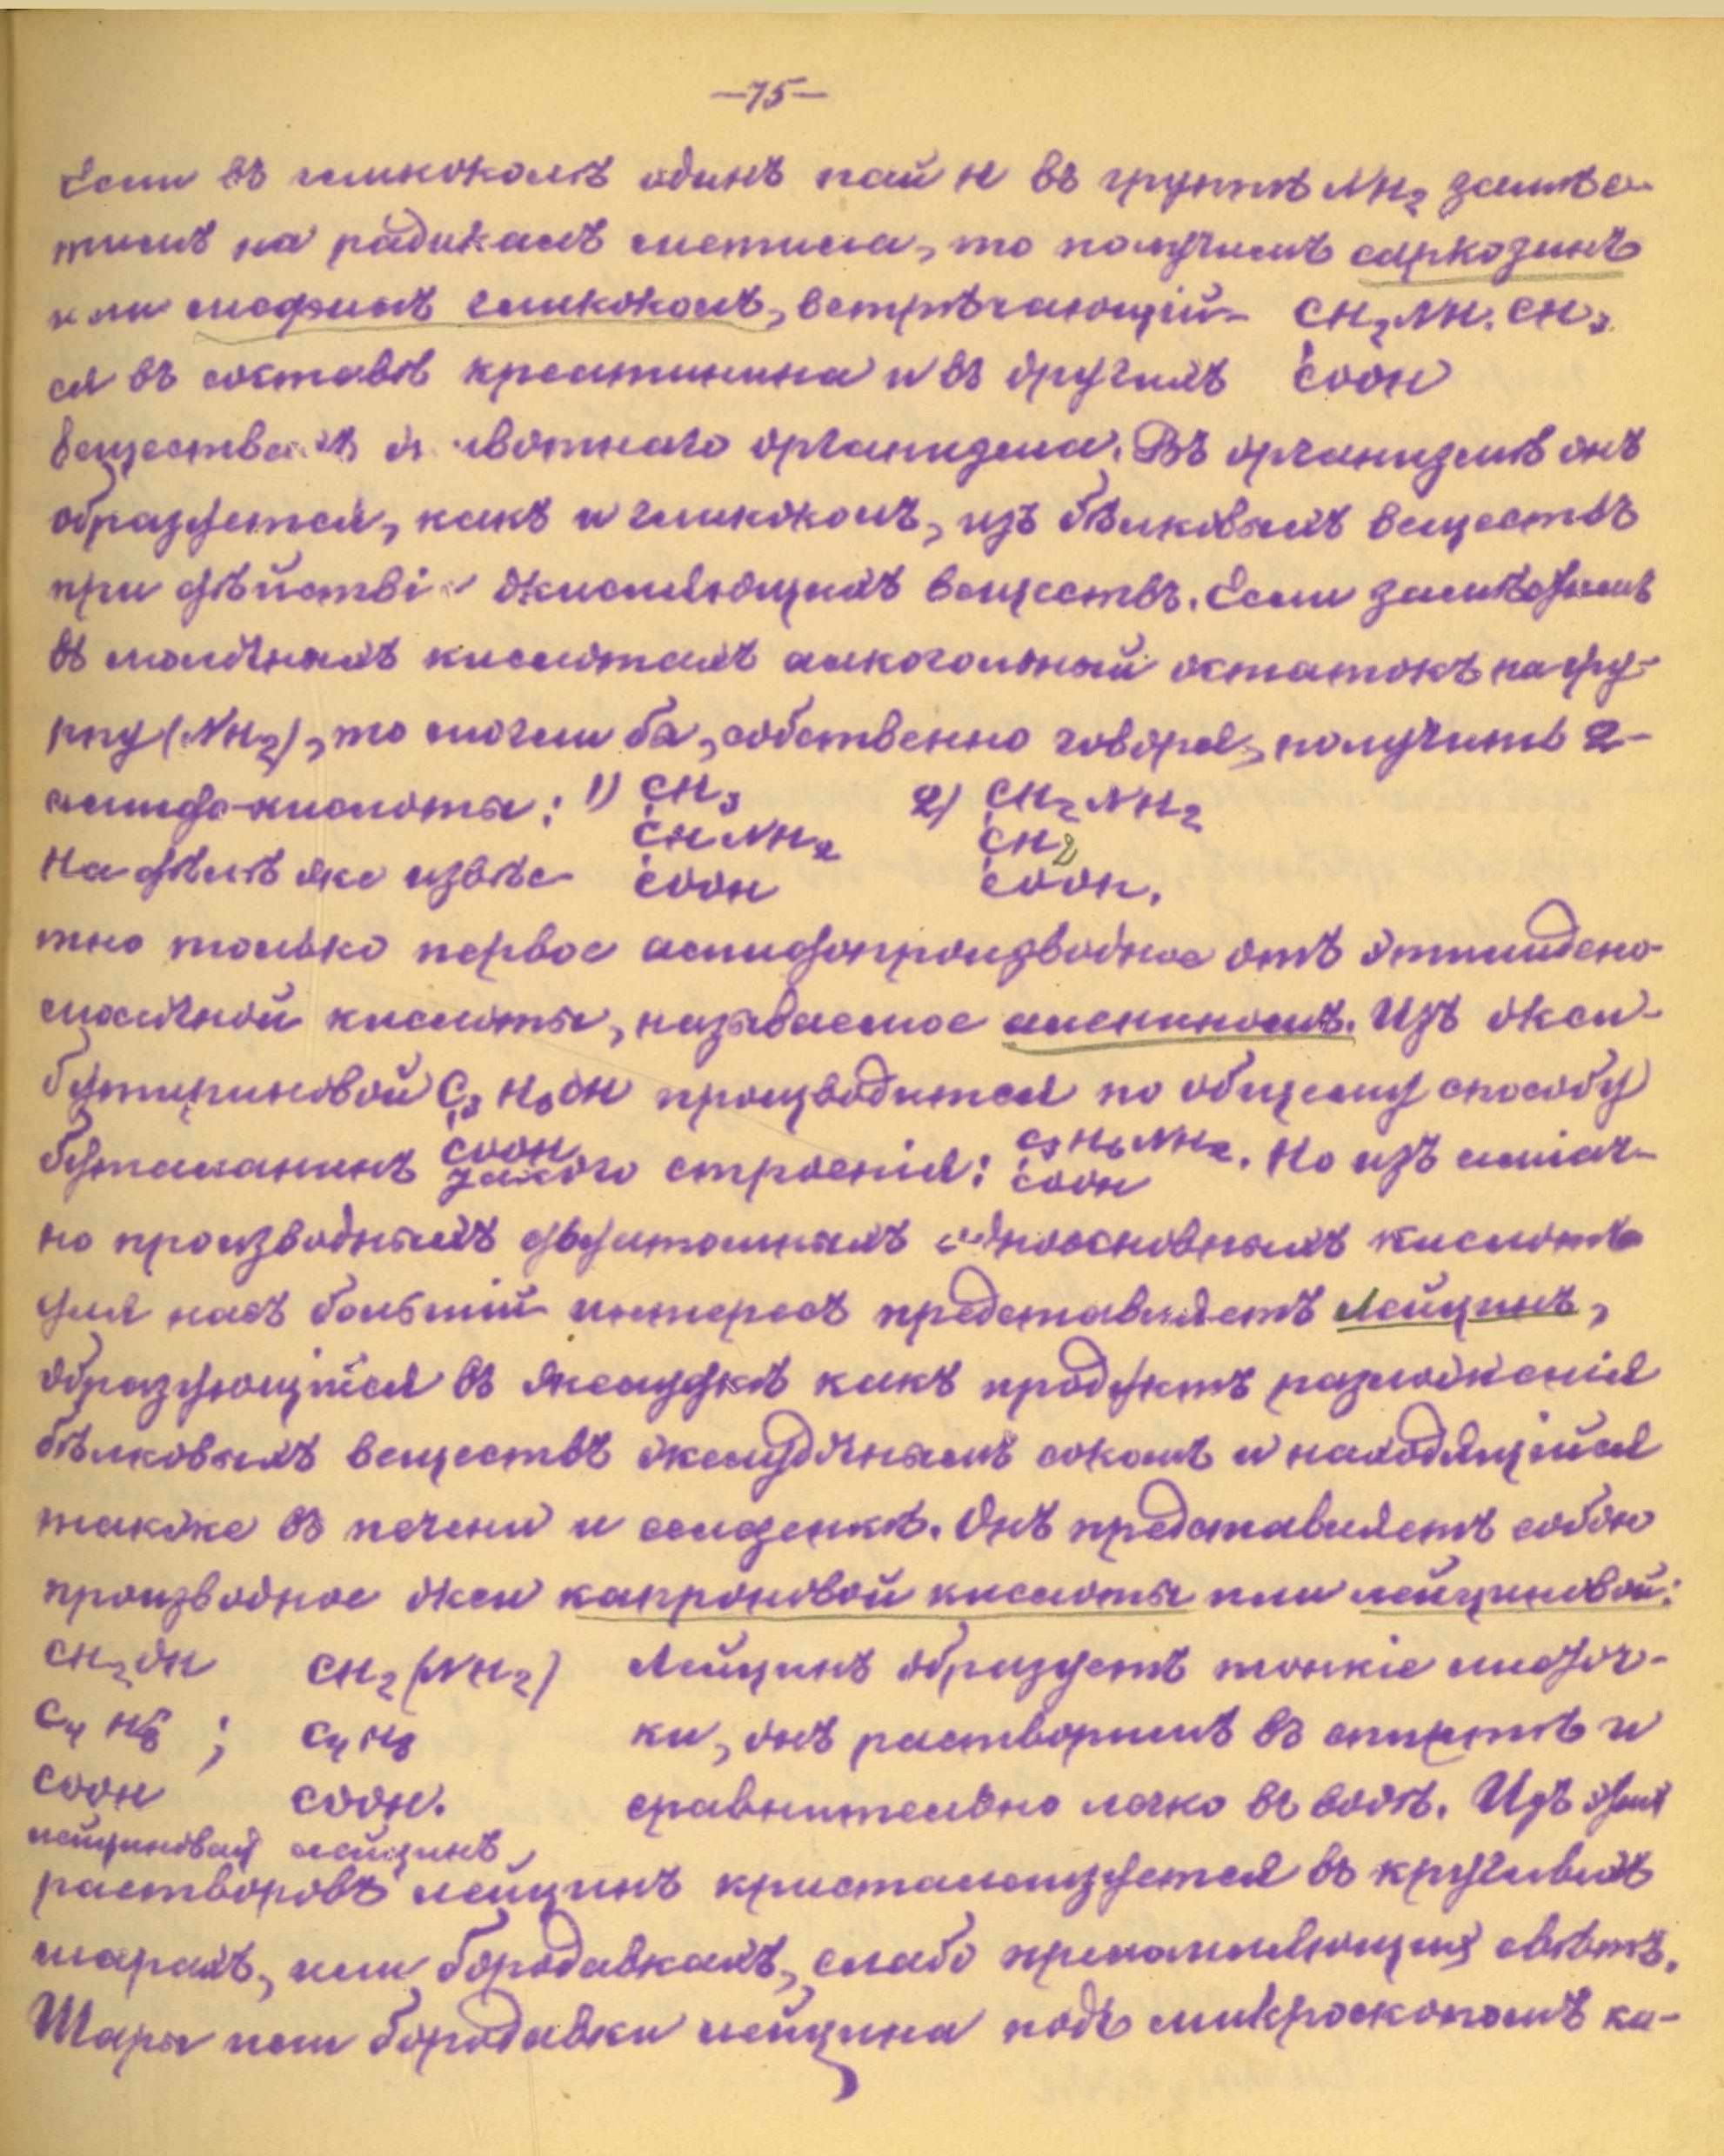 —75—
Если въ гликоколѣ одинъ пай H въ группѣ NH2 замѣс-
тимъ на радикалъ метила, то получимъ саркозинъ
или мефилъ гликоколъ, встрѣчающій- CH2NH.CH3
ся въ составѣ креатинина и въ другихъ COOH
веществахъ животнаго организма. Въ организмѣ онъ
образуется, какъ и гликоколъ, изъ бѣлковыхъ веществъ
при дѣйствіи окисляющихъ веществъ. Если замѣстимъ
въ молочныхъ кислотахъ алкогольный остатокъ на гру-
ппу (NH2), то могли бы, собственно говоря, получить 2-
амидо-кислоты: 1) CH3 2) CH2NH2
CHNH2 CH2
На дѣлѣ же извѣс- COOH COOH.
тно только первое амидопроизводное отъ этилидено-
молочной кислоты, называемое аленинонъ. Изъ окси-
бутириновой C3H6OH производится по общему способу
бутананинъ COOH такого строенія: C3H6NH2. Но изъ аміач-
COOH
но производныхъ двуатомныхъ одноосновныхъ кислотъ
для насъ большій интересъ представляетъ Лейцинъ,
образующійся въ желудкѣ какъ продуктъ разложенія
бѣлковыхъ веществъ желудочнымъ сокомъ и находящійся
также въ печени и селезенкѣ. Онъ представляетъ собою
производное окси капроновой кислоты или лейциновой:
CH2OH CH2(NH2) Лейцинъ образуетъ тонкіе листоч-
C4H8 ; C4H8 ки, онъ растворимъ въ спиртѣ и
COOH COOH. сравнительно легко въ водѣ. Изъ этихъ
лейциновая лейцинъ,
растворовъ лейцинъ кристаллизуется въ круглыхъ
шарахъ, или бородавкахъ, слабо преломляющихъ свѣтъ.
Шары или бородавки лейцина подъ микроскопомъ ка-